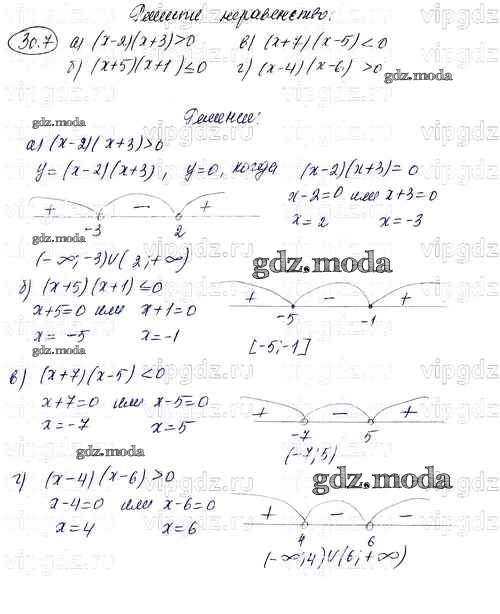 Решите неравенство:
30.7 а) (x-2)(x+3)>0 в) (x+7)(x-5)<0
б) (x+5)(x+1)≤0 г) (x-4)(x-6)>0
gdz.moda
gdz.moda
Решение:
а) (x-2)(x+3)>0
y=(x-2)(x+3), y=0, когда (x-2)(x+3)=0
x-2=0 или x+3=0
x=2 x=-3
+ - +
-3 2
gdz.moda
(-∞;-3)∪(2;+∞)
gdz.moda
б) (x+5)(x+1)≤0
x+5=0 или x+1=0
x=-5 x=-1
+ - +
-5 -1
gdz.moda
[-5;-1]
в) (x+7)(x-5)<0
x+7=0 или x-5=0
x=-7 x=5
+ - +
-7 5
gdz.moda
(-7;5)
г) (x-4)(x-6)>0
gdz.moda
x-4=0 или x-6=0
x=4 x=6
+ - +
4 6
(-∞;4)∪(6;+∞)
vipgdz.ru